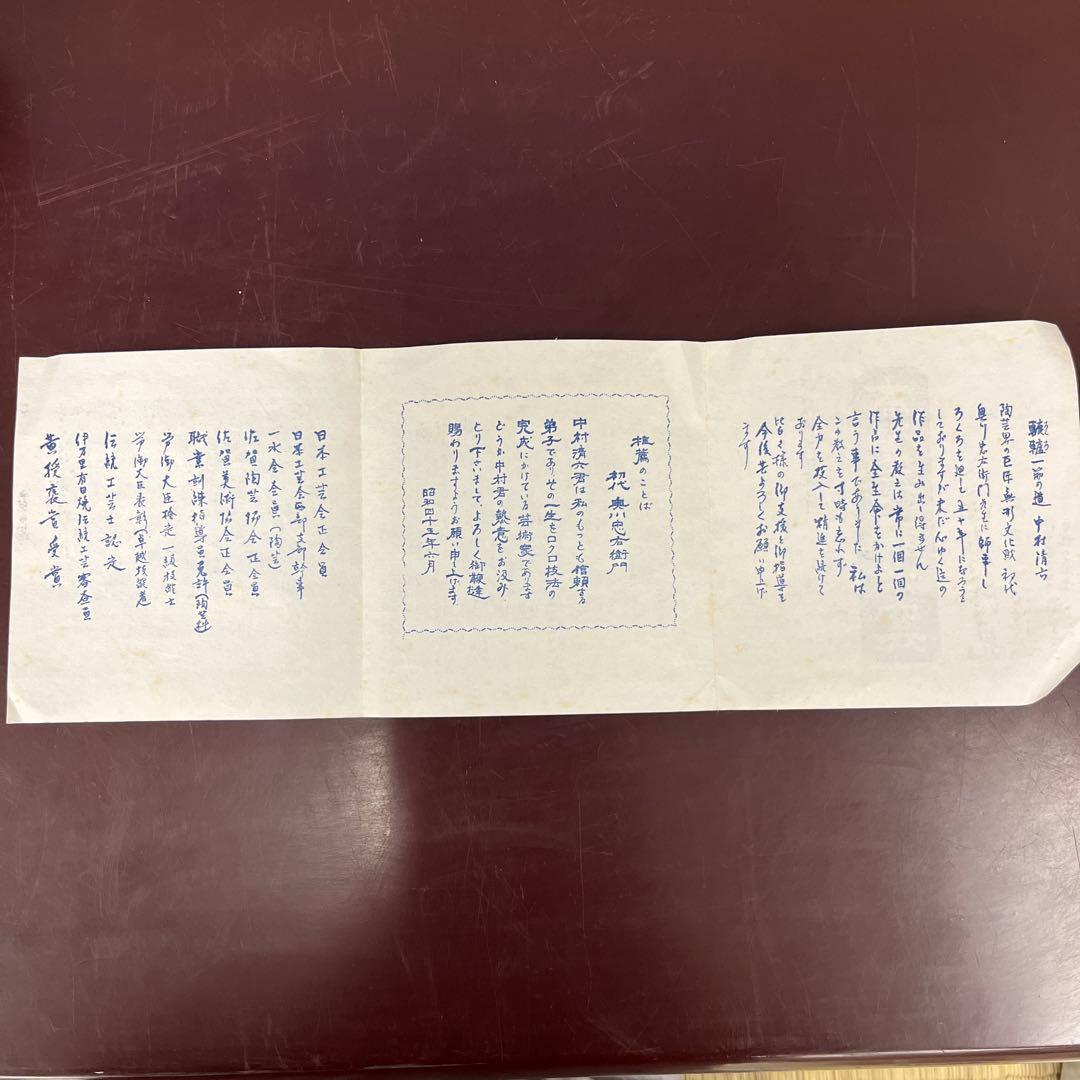 轆轤一筋の道 中村清六
陶芸界の巨匠無形文化財 初代
奥川忠右衛門先生に師事し
ろくろを廻して五十年になろうと
しておりますが未だ心ゆく迄の
作品を生み出し得ません
先生の教えは常に一個一個の
作品に全生命をかけよと
言う事でありました 私は
この教えを寸時も忘れず
全力を投入して精進を続けて
おります
皆々様の御支援と御指導を
今後共よろしくお願い申上げ
ます
推薦のことば
初代 奥川忠右衛門
中村清六君は私のもっとも信頼する
弟子でありその一生をロクロ技法の
完成にかけている芸術家であります
どうか中村君の熱意をお汲み
とり下さいましてよろしく御鞭撻
賜わりますようお願い申し上げます
昭和四十五年六月
日本工芸会正会員
日本工芸会西部支部幹事
一水会会員(陶芸)
佐賀陶芸協会正会員
佐賀美術協会正会員
職業訓練指導員免許(陶芸科)
労働大臣検定一級技能士
労働大臣表彰(卓越技能者)
伝統工芸士認定
伊万里有田焼伝統工芸審査員
黄授褒賞受賞